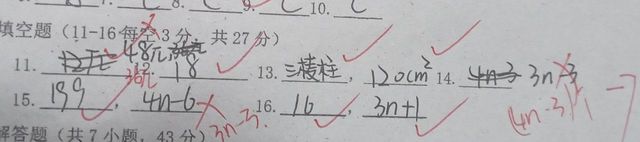 7. C 8. C 9. C 10. C
填空题（11-16 每空 3 分，共 27 分）
11. 48元 36元 18 13. 三棱柱，120cm² 14. 4n-3 3n-3
15. 199，4n-6 3n-3 16. 16，3n+1 (4n-3) -7
解答题（共 7 小题，43 分）